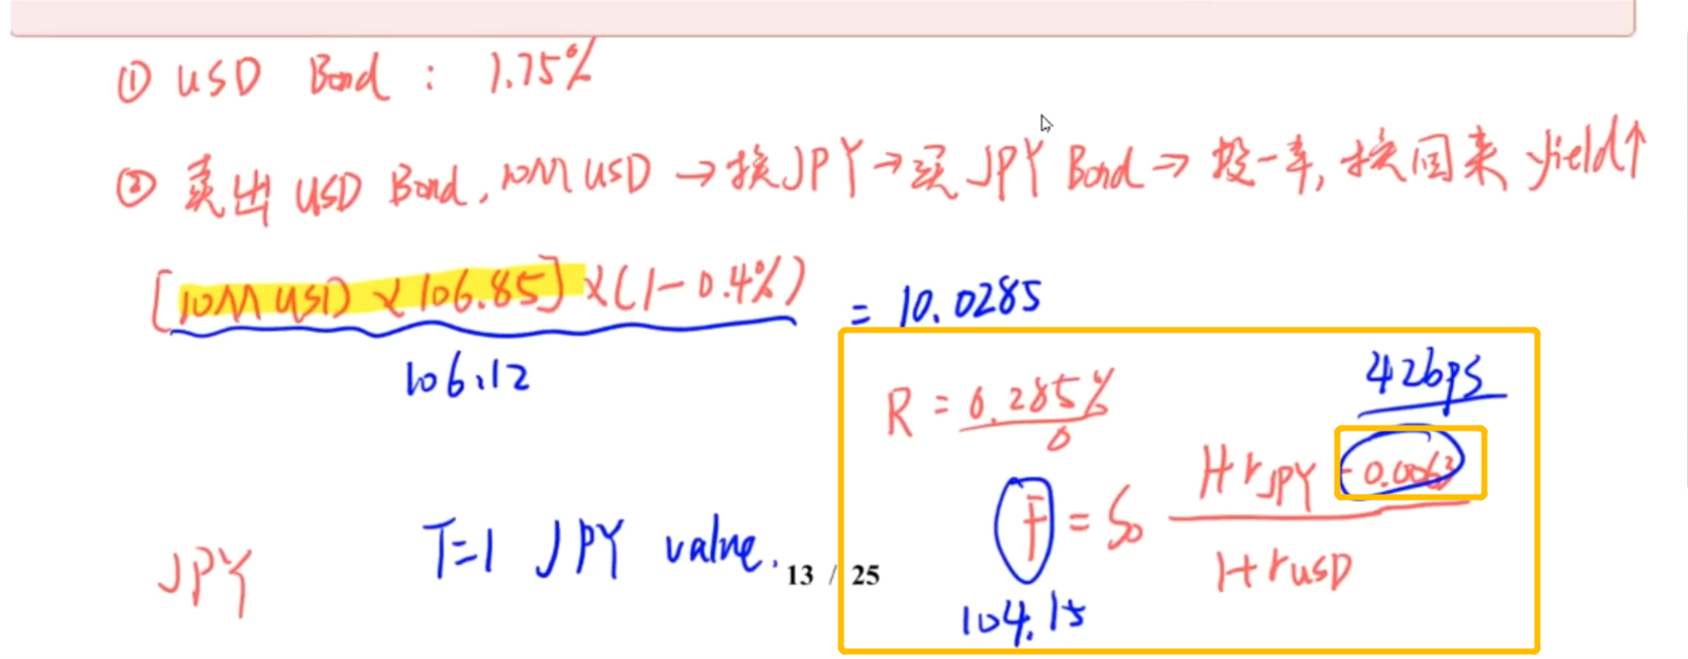 ① USD Bond : 1.75%
② 卖出 USD Bond, 10M USD → 换JPY → 买 JPY Bond ⇒ 投一年, 换回来 yield↑
[10M USD × 106.85] × (1 - 0.4%) = 10.0285
106.12
42bps
R = 0.285%
F = S₀ (1 + rJPY - 0.0063) / (1 + rUSD)
104.15
JPY
T=1 JPY value.
13 / 25